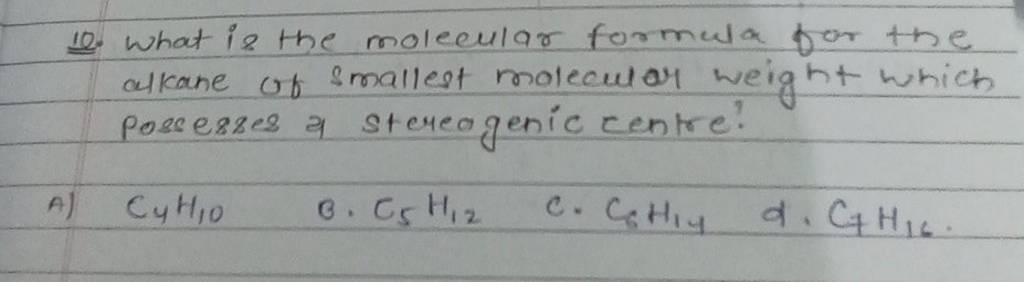 10. What is the molecular formula for the
alkane of smallest molecular weight which
possesses a stereogenic centre?
A) C4H10 B. C5H12 C. C6H14 d. C7H16.